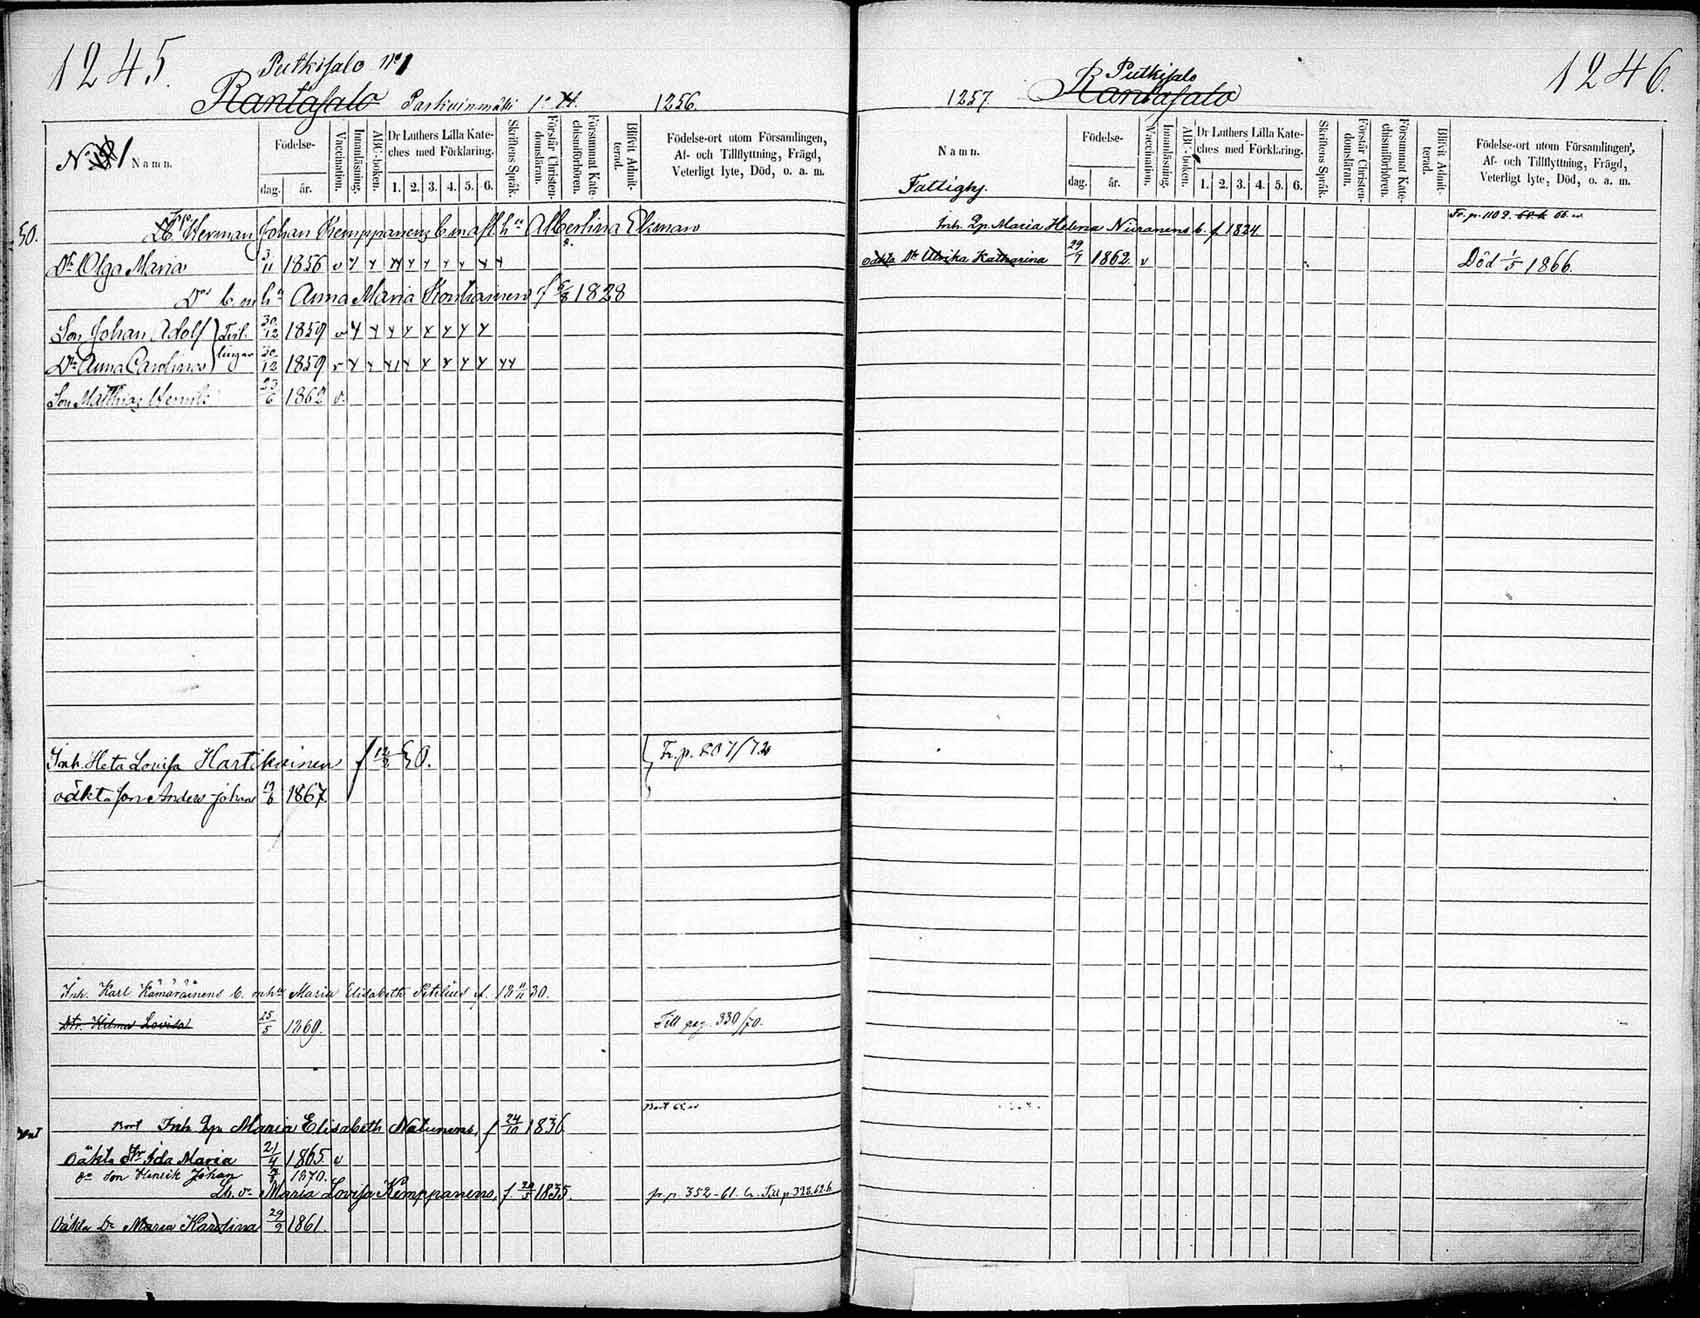 1245.
Putkisalo No 1
Rantasalo Parkuinmäki 1256.
No 1 Namn.
Födelse-
dag. år.
Vaccination.
Innanläsning.
ABC-boken.
Dr Luthers Lilla Kate-
ches med Förklaring.
1. 2. 3. 4. 5. 6.
Skriftens Språk.
Förstår Christen-
domsläran.
Försummat Kate-
chismiförhören.
Blifvit Admit-
terad.
Födelse-ort utom Församlingen,
Af- och Tillflyttning, Frägd,
Veterligt lyte, Död, o. a. m.
50.
Herman Johan Kemppanens b. m afl. hu Albertina Ekman
Dr Olga Maria 3/11 1856 v
Ds b. m hu Anna Maria Kontiainen f 5/8 1828
Son Johan Adolf Tvil- 30/12 1859 v
Dr Anna Carolina lingar 30/12 1859 v
Son Matthias Henrik 23/6 1862 v.
Inh. Heta Lovisa Hartikainen f 12/2 50. Fr. p. 807/72
oäkta son Anders Johan 19/6 1867.
Inh. Karl Kämäräinens b. m hu Maria Elisabeth Pitkäus f. 18 11/11 30.
Dtr. Hilma Lovisa 25/5 1860. Till pag. 330/70.
bort Inh. Pig. Maria Elisabeth Natunens, f 24/10 1836
Oäkta Dtr Ida Maria 21/4 1865 v
So Son Henrik Johan 1870.
Maria Lovisa Kemppanens, f. 24/5 1835. fr. p. 352-61. Till p. 328.62.
Oäkta Dr Maria Karolina 29/9 1861.
1246.
Putkisalo
1257. Rantasalo
Namn.
Fattighj.
Födelse-
dag. år.
Vaccination.
Innanläsning.
ABC-boken.
Dr Luthers Lilla Kate-
ches med Förklaring.
1. 2. 3. 4. 5. 6.
Skriftens Språk.
Förstår Christen-
domsläran.
Försummat Kate-
chismiförhören.
Blifvit Admit-
terad.
Födelse-ort utom Församlingen,
Af- och Tillflyttning, Frägd,
Veterligt lyte, Död, o. a. m.
Inh. Pp. Maria Helena Niiranens b. f 1824 Fr. p. 1109.
oäkta Dr Ulrika Katharina 29/7 1862 v Död 1/5 1866.